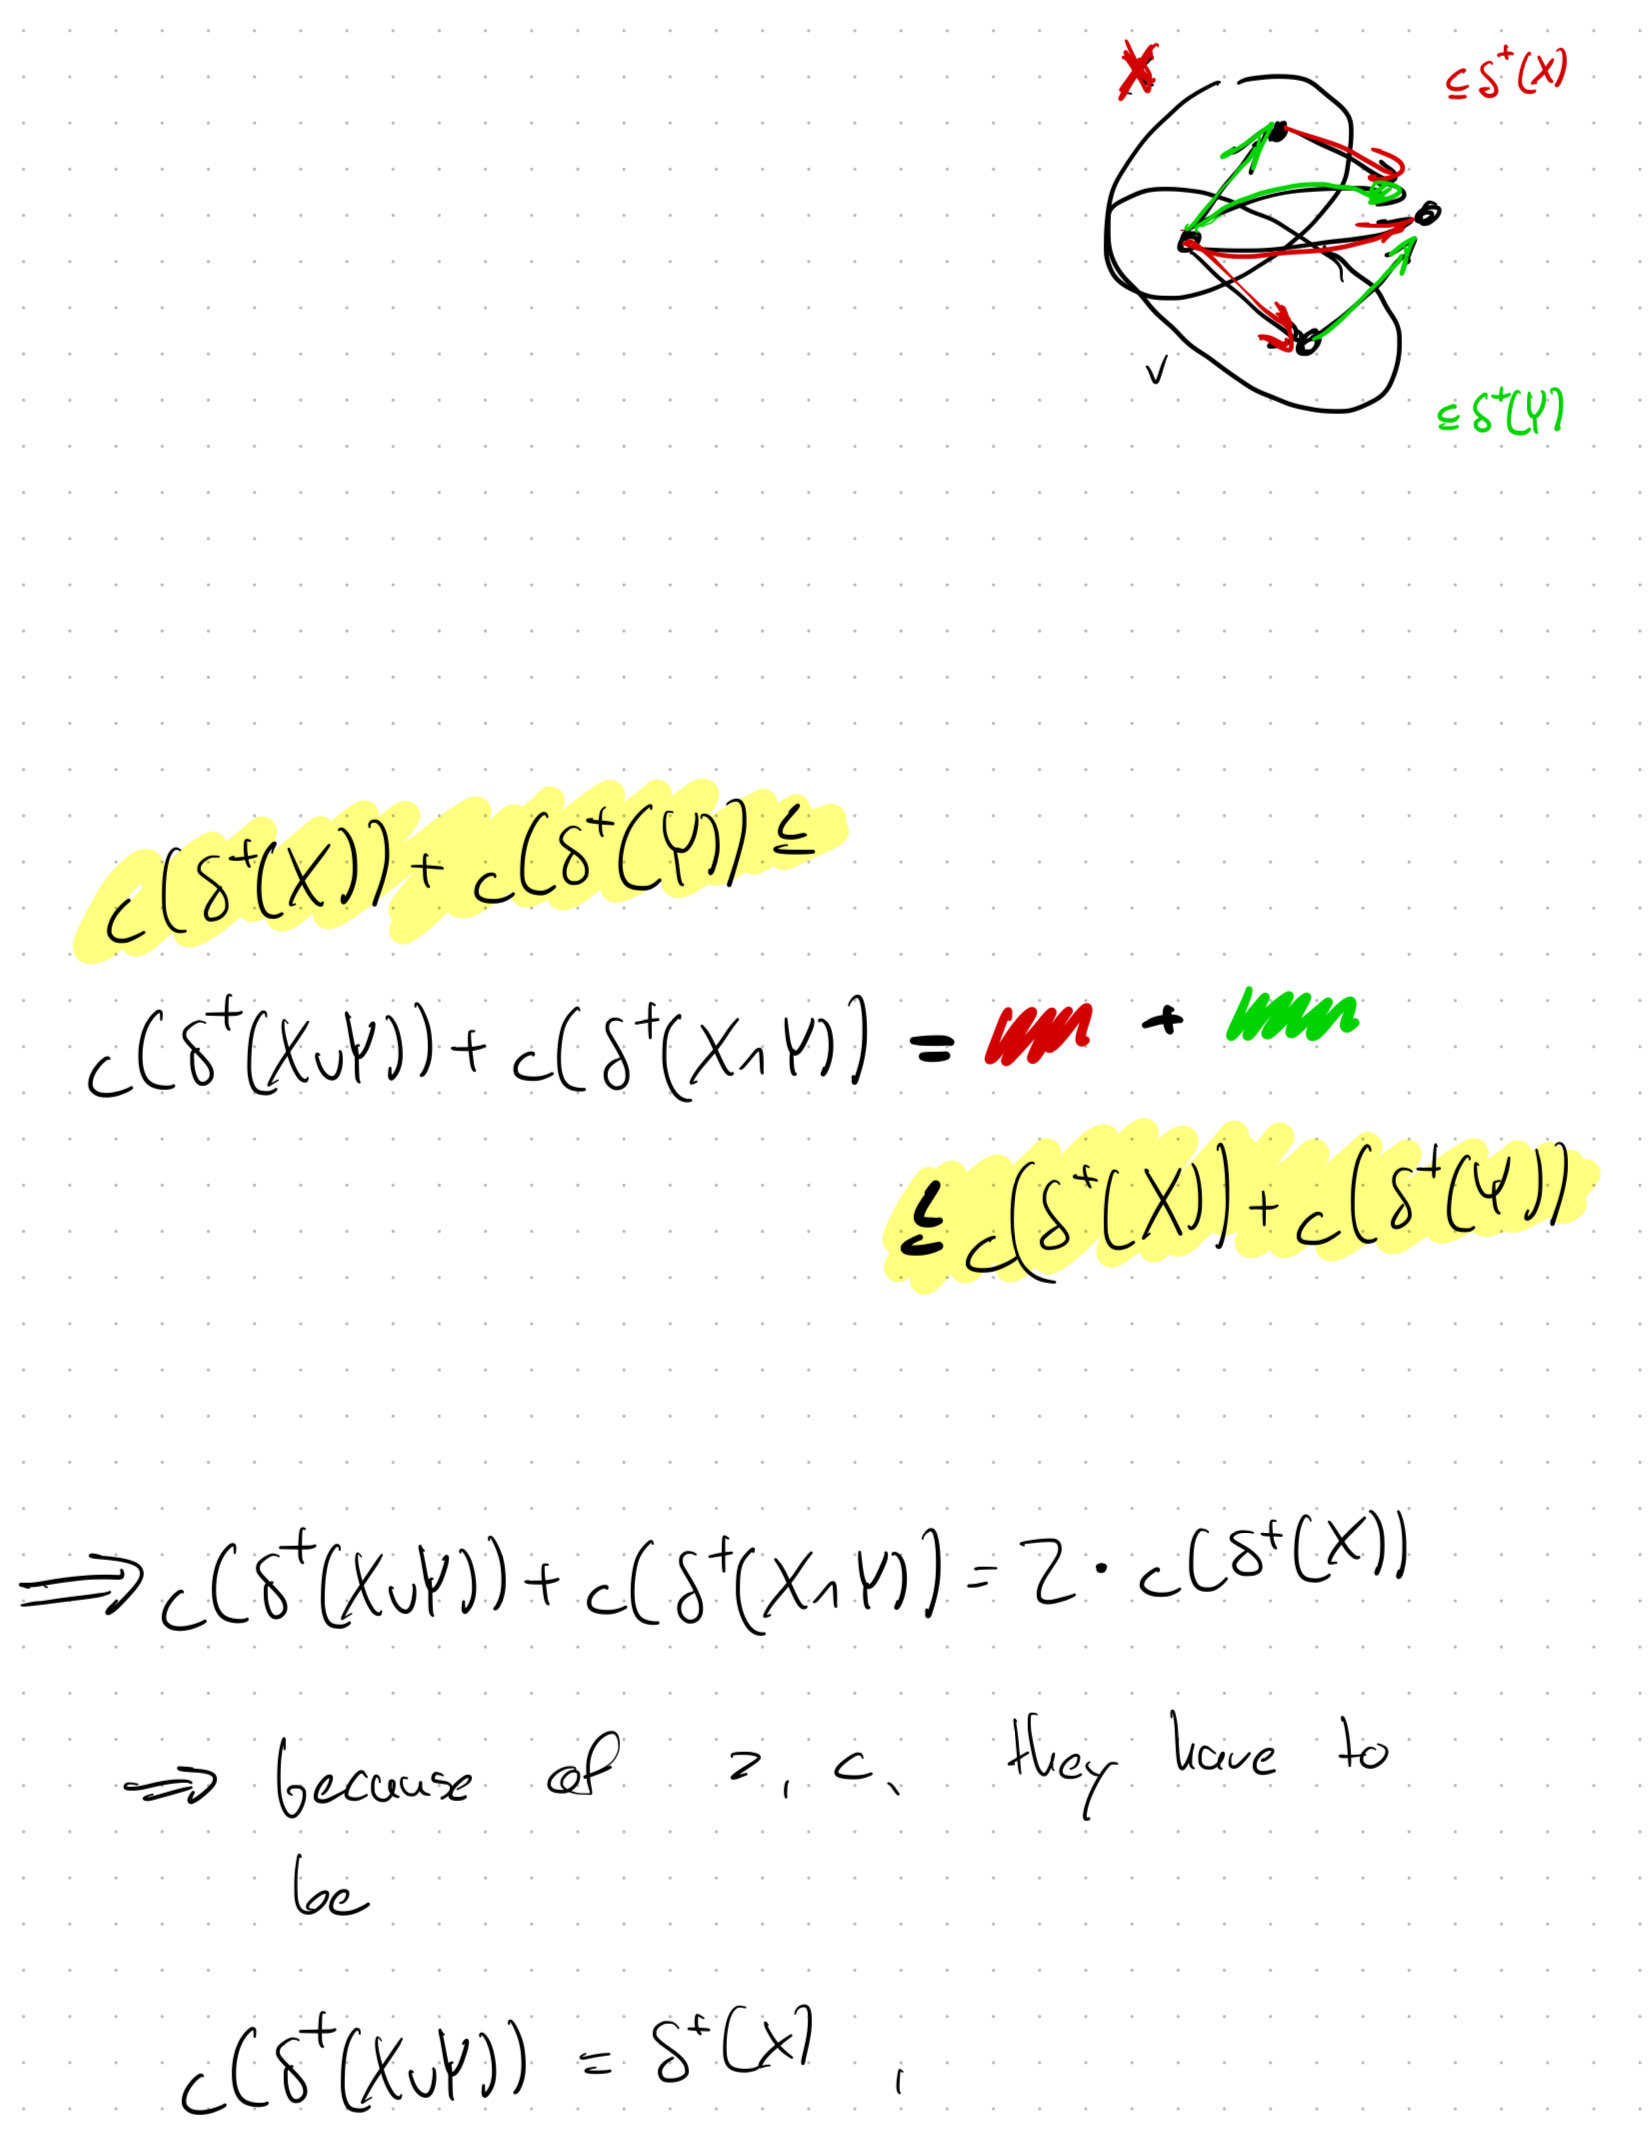 X
⊆ δ⁺(X)
⊆ δ⁺(Y)
c(δ⁺(X)) + c(δ⁺(Y)) ≤
c(δ⁺(X∪Y)) + c(δ⁺(X∩Y)) = +
≤ c(δ⁺(X)) + c(δ⁺(Y))
⟹ c(δ⁺(X∪Y)) + c(δ⁺(X∩Y)) = 2 · c(δ⁺(X))
⇒ because of 2, c, they have to
be
c(δ⁺(X∪Y)) = δ⁺(X) ,